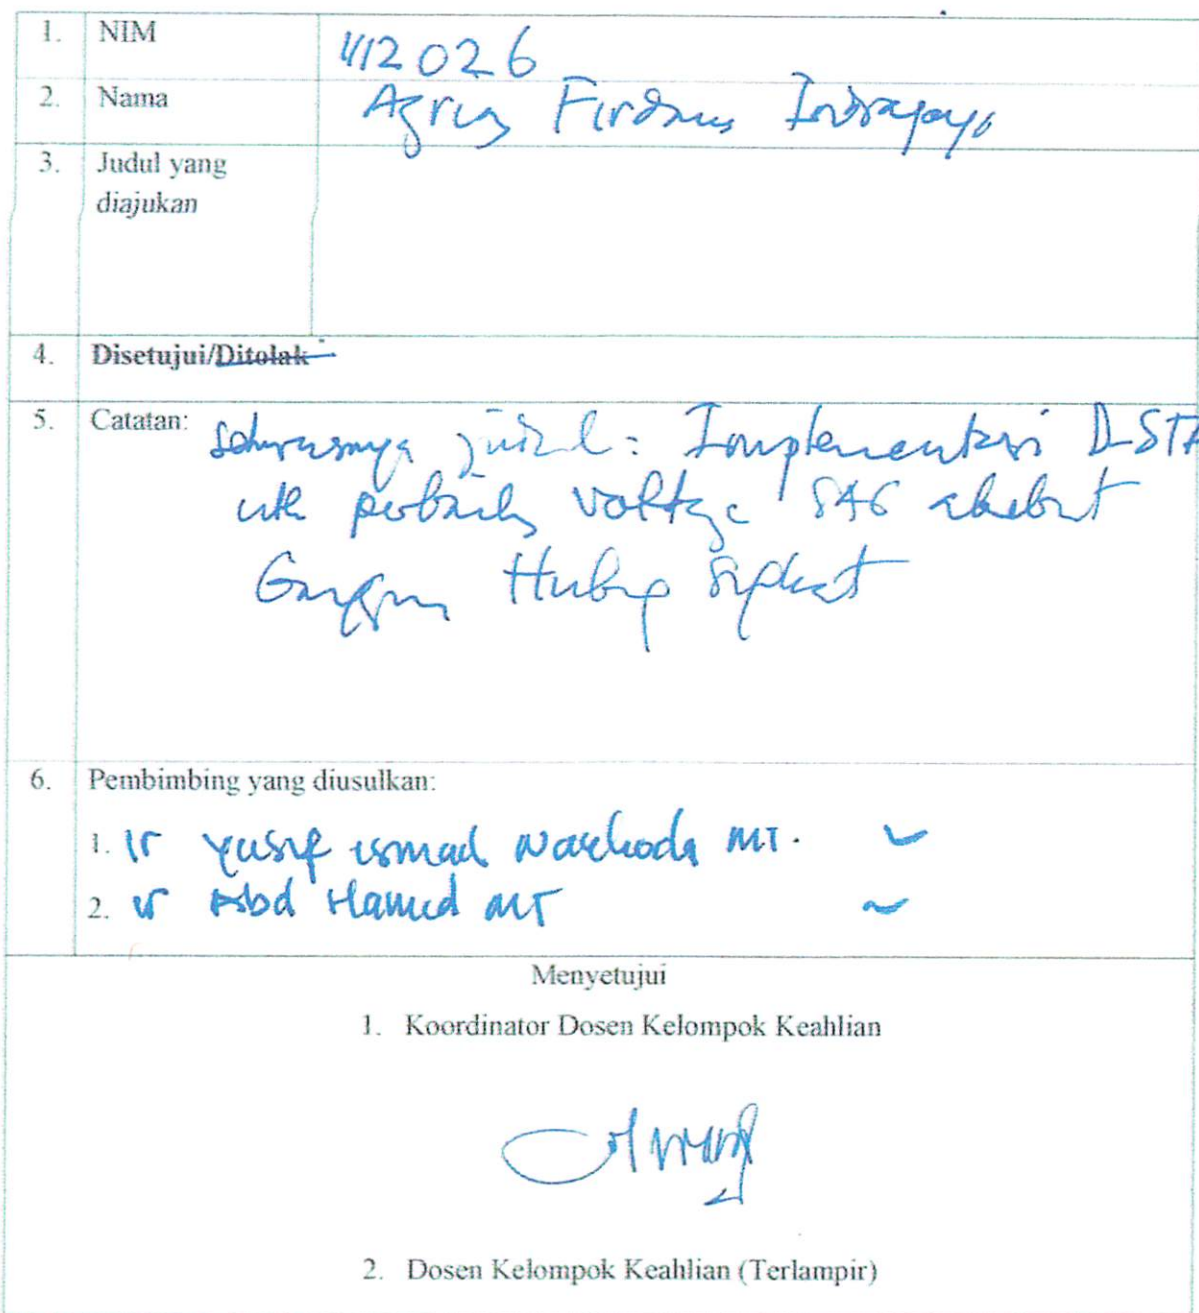 1. NIM 1112026
2. Nama Agus Firdaus Indrajayo
3. Judul yang
diajukan
4. Disetujui/Ditolak
5. Catatan: Seharusnya judul: Implementasi D-STA
utk perbaiki voltage SAG akibat
Gangguan Hubung Singkat
6. Pembimbing yang diusulkan:
1. Ir Yusuf Ismail Nakhoda MT.
2. Ir Abd Hamid MT
Menyetujui
1. Koordinator Dosen Kelompok Keahlian
2. Dosen Kelompok Keahlian (Terlampir)